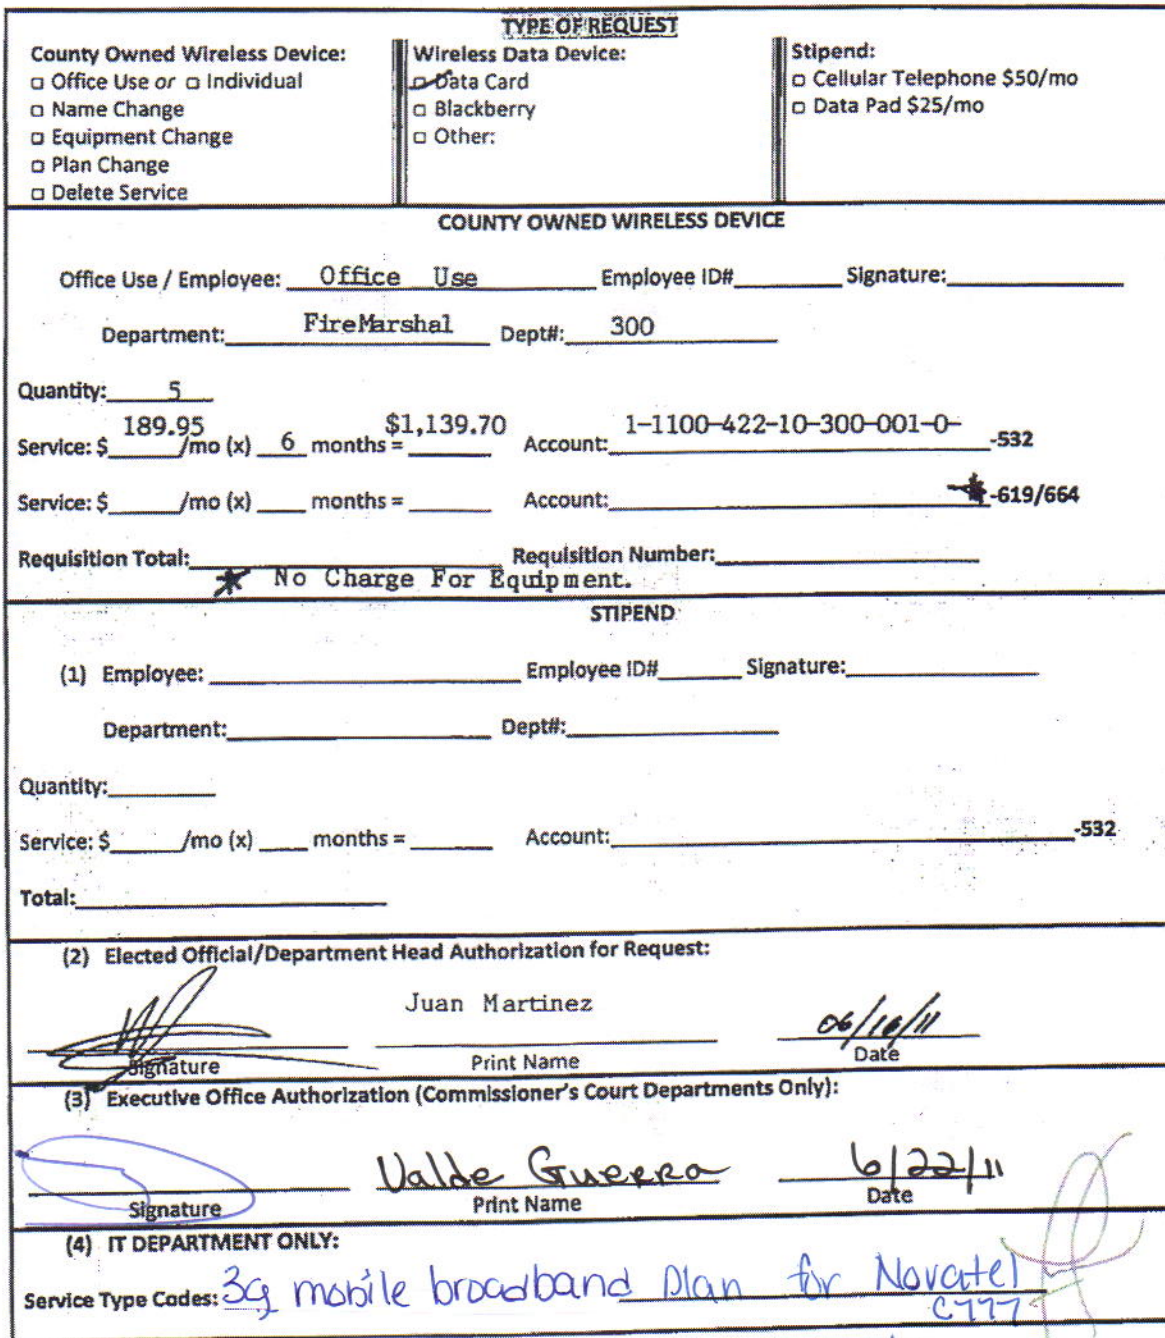 TYPE OF REQUEST
County Owned Wireless Device:
□ Office Use or □ Individual
□ Name Change
□ Equipment Change
□ Plan Change
□ Delete Service
Wireless Data Device:
□ Data Card
□ Blackberry
□ Other:
Stipend:
□ Cellular Telephone $50/mo
□ Data Pad $25/mo
COUNTY OWNED WIRELESS DEVICE
Office Use / Employee: Office Use Employee ID# Signature:
Department: FireMarshal Dept#: 300
Quantity: 5
Service: $ 189.95 /mo (x) 6 months = $1,139.70 Account: 1-1100-422-10-300-001-0- -532
Service: $ /mo (x) months = Account: ★-619/664
Requisition Total: Requisition Number:
★ No Charge For Equipment.
STIPEND
(1) Employee: Employee ID# Signature:
Department: Dept#:
Quantity:
Service: $ /mo (x) months = Account: -532
Total:
(2) Elected Official/Department Head Authorization for Request:
Juan Martinez 06/16/11
Signature Print Name Date
(3) Executive Office Authorization (Commissioner's Court Departments Only):
Valde Guerra 6/22/11
Signature Print Name Date
(4) IT DEPARTMENT ONLY:
Service Type Codes: 3g mobile broadband plan for Novatel
C777